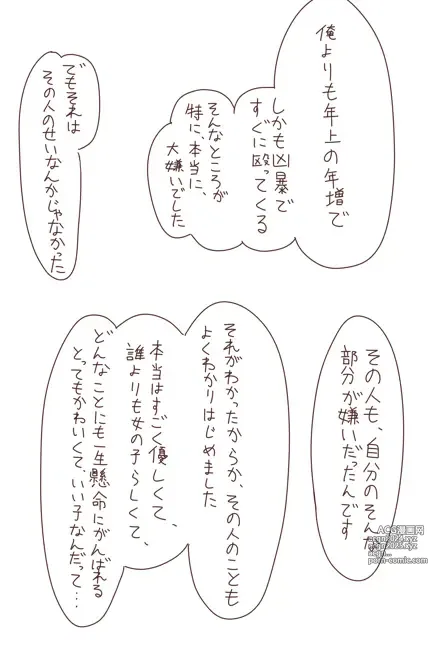 俺よりも年上の年増で
しかも凶暴で
すぐに殴ってくる
そんなところが
特に、本当に、
大嫌いでした
でもそれは
その人のせいなんかじゃなかった
その人も、自分のそんな
部分が嫌いだったんです
それがわかったからか、その人のことも
よくわかりはじめました
本当はすごく優しくて、
誰よりも女の子らしくて、
どんなことにも一生懸命にがんばれる
とってもかわいくて、いい子なんだって…
ACG漫画网